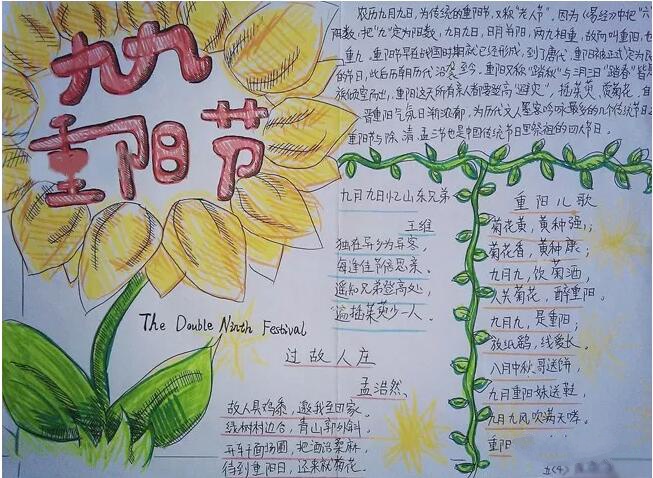 九九
重阳节
农历九月九日，为传统的重阳节，又称"老人节"。因为《易经》中把"六
阳数，把"九"定为阳数，九月九日，日月并阳，两九相重，故而叫重阳，也
重九。重阳节早在战国时期就已经形成，到了唐代，重阳被正式定为民
的节日，此后历朝历代沿袭至今。重阳又称"踏秋"与三月三日"踏春"皆是
族倾室而出，重阳这天所有亲人都要登高"避灾"，插茱萸、赏菊花。自
晋重阳气氛日渐浓郁，为历代文人墨客吟咏最多的几个传统节日之
重阳节与除、清、盂三节也是中国传统节日里祭祖的四大节日。
九月九日忆山东兄弟
王维
独在异乡为异客，
每逢佳节倍思亲。
遥知兄弟登高处，
遍插茱萸少一人。
The Double Ninth Festival
过故人庄
孟浩然、
故人具鸡黍，邀我至田家。
绿树村边合，青山郭外斜。
开轩面场圃，把酒话桑麻。
待到重阳日，还来就菊花。
重阳儿歌
菊花黄，黄种强；
菊花香，黄种康；
九月九，饮菊酒，
人共菊花，醉重阳。
九月九，是重阳；
放纸鹞，线爱长。
八月中秋哥送饼，
九月重阳妹送鞋，
九月九风吹满天哮。
重阳
五(4)